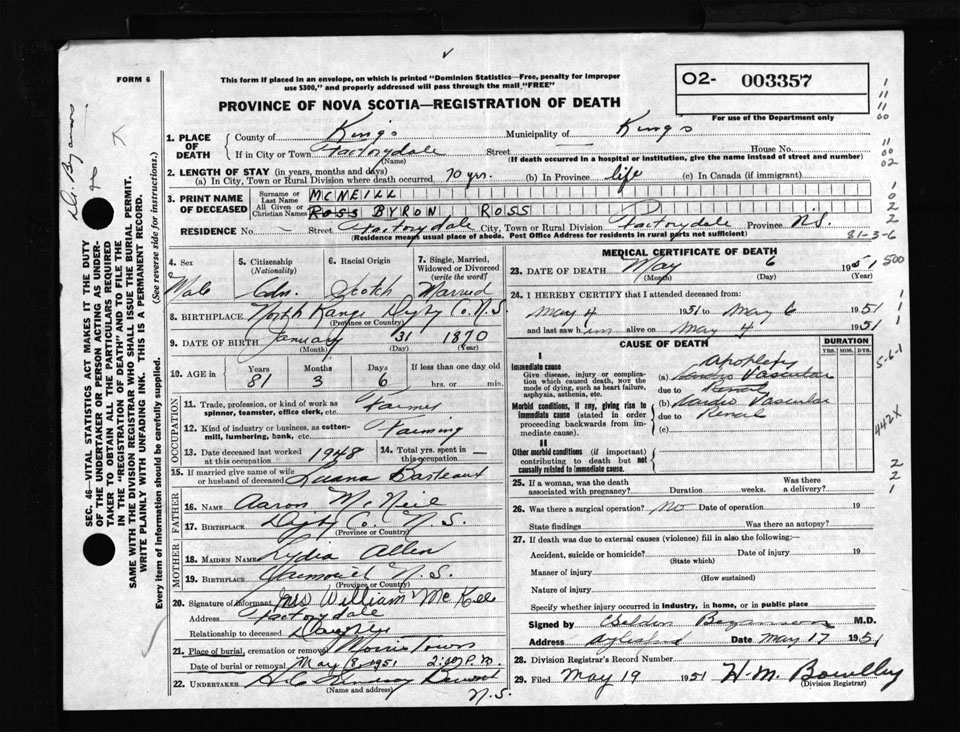 FORM 6
This form if placed in an envelope, on which is printed "Dominion Statistics—Free, penalty for improper
use $300," and properly addressed will pass through the mail "FREE"
O2- 003357
For use of the Department only
PROVINCE OF NOVA SCOTIA—REGISTRATION OF DEATH
1. PLACE OF DEATH
County of Kings Municipality of Kings
If in City or Town Factorydale Street — House No.
(Name) (If death occurred in a hospital or institution, give the name instead of street and number)
2. LENGTH OF STAY (in years, months and days)
(a) In City, Town or Rural Division where death occurred 70 yrs. (b) In Province life (c) In Canada (if immigrant)
3. PRINT NAME OF DECEASED
Surname or Last Name MCNEILL
All Given or Christian Names ROSS BYRON ROSS
RESIDENCE No. — Street Factorydale City, Town or Rural Division Factorydale Province N.S.
(Residence means usual place of abode. Post Office Address for residents in rural parts not sufficient)
81-3-6
4. Sex Male
5. Citizenship (Nationality) Cdn.
6. Racial Origin Scotch
7. Single, Married, Widowed or Divorced (write the word) Married
8. BIRTHPLACE North Range Digby Co. N.S.
(Province or Country)
9. DATE OF BIRTH January 31 1870
(Month) (Day) (Year)
10. AGE in Years 81 Months 3 Days 6 If less than one day old
hrs. or min.
OCCUPATION
11. Trade, profession, or kind of work as spinner, teamster, office clerk, etc. Farmer
12. Kind of industry or business, as cotton-mill, lumbering, bank, etc. Farming
13. Date deceased last worked at this occupation 1948
14. Total yrs. spent in this occupation —
15. If married give name of wife or husband of deceased Luana Barteaux
FATHER
16. NAME Aaron McNeil
17. BIRTHPLACE Digby Co. N.S.
(Province or Country)
MOTHER
18. MAIDEN NAME Lydia Allen
19. BIRTHPLACE N.S.
(Province or Country)
20. Signature of informant Mrs William
Address Factorydale
Relationship to deceased Daughter
21. Place of burial, cremation or removal Morristown
Date of burial or removal May 8, 1951 P.M.
22. UNDERTAKER Berwick
(Name and address) N.S.
MEDICAL CERTIFICATE OF DEATH
23. DATE OF DEATH May 6 1951
(Month) (Day) (Year)
500
24. I HEREBY CERTIFY that I attended deceased from:
May 4 1951 to May 6 1951
and last saw him alive on May 4 1951
CAUSE OF DEATH
DURATION
YRS. MOS. DYS.
I
Immediate cause
Give disease, injury or complication which caused death, not the mode of dying, such as heart failure, asphyxia, asthenia, etc.
Apoplexy
(a) Cardio Vascular
due to Renal
Morbid conditions, if any, giving rise to immediate cause (stated in order proceeding backwards from immediate cause).
(b) Cardio Vascular
due to Renal
(c)
442X
II
Other morbid conditions (if important) contributing to death but not causally related to immediate cause.
25. If a woman, was the death associated with pregnancy? Duration weeks. Was there a delivery?
26. Was there a surgical operation? No Date of operation 19
State findings Was there an autopsy?
27. If death was due to external causes (violence) fill in also the following:
Accident, suicide or homicide? Date of injury 19
(State which)
Manner of injury
(How sustained)
Nature of injury
Specify whether injury occurred in industry, in home, or in public place
Signed by M.D.
Address Aylesford Date May 17 1951
28. Division Registrar's Record Number
29. Filed May 19 1951 H. M.
(Division Registrar)
SEC. 46—VITAL STATISTICS ACT MAKES IT THE DUTY
OF THE UNDERTAKER OR PERSON ACTING AS UNDERTAKER
TO OBTAIN ALL THE PARTICULARS REQUIRED
IN THE "REGISTRATION OF DEATH" AND TO FILE THE
SAME WITH THE DIVISION REGISTRAR WHO SHALL ISSUE THE BURIAL PERMIT.
WRITE PLAINLY WITH UNFADING INK. THIS IS A PERMANENT RECORD.
Every item of information should be carefully supplied. (See reverse side for instructions.)